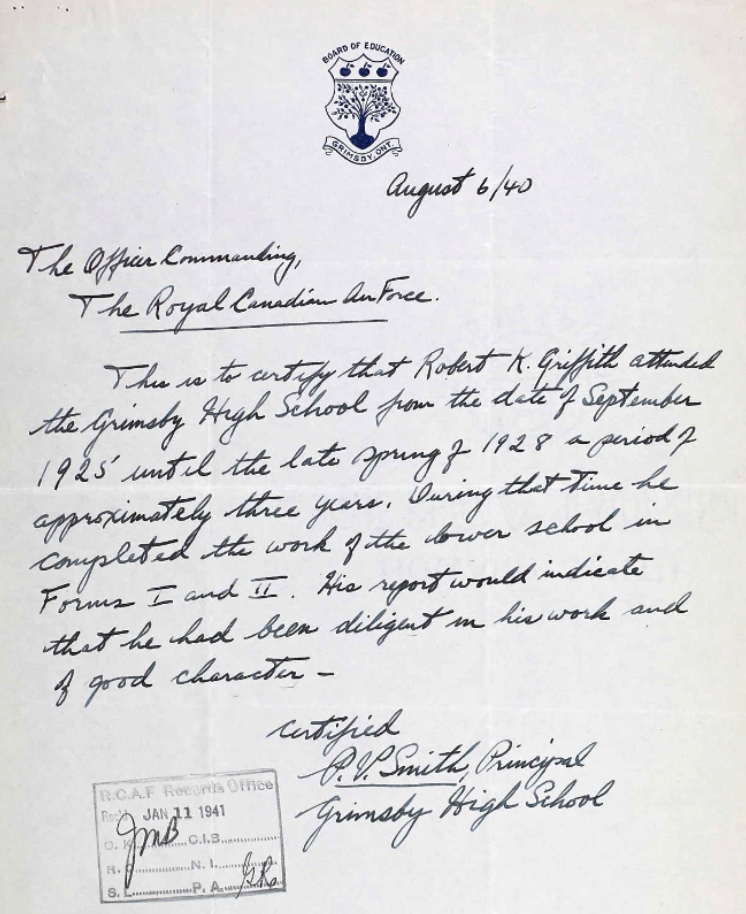 BOARD OF EDUCATION
GRIMSBY, ONT.
August 6/40
The Officer Commanding,
The Royal Canadian Air Force.
This is to certify that Robert K. Griffith attended
the Grimsby High School from the date of September
1925 until the late spring of 1928 a period of
approximately three years. During that time he
completed the work of the lower school in
Forms I and II. His report would indicate
that he had been diligent in his work and
of good character –
certified
P.V. Smith, Principal
Grimsby High School
R.C.A.F. Records Office
Rec'd JAN 11 1941
O. K. JMB C.I.B.
R. N. I.
S. L. P. A. GR